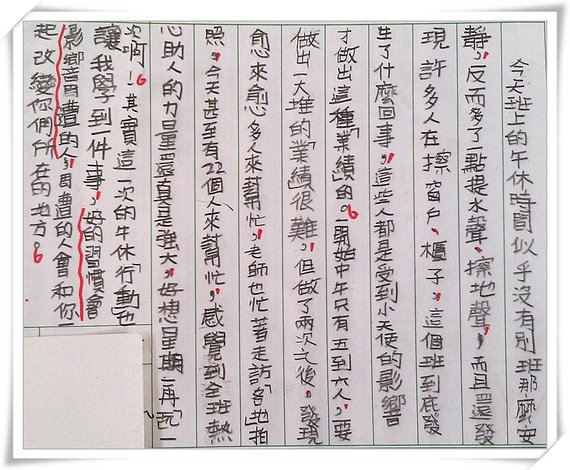 今天班上的午休時間似乎沒有別班那麼安
靜，反而多了一點提水聲、擦地聲，而且還發
現許多人在擦窗戶、櫃子，這個班到底發
生了什麼回事，這些人都是受到小天使的影響
才做出這種「業績」的。開始中午只有五到六人，要
做出一大堆的「業績」很難，但做了兩次之後，發現
愈來愈多人來幫忙，老師也忙著走訪「各」地拍
照，今天甚至有22個人來幫忙，感覺到全班熱
心助人的力量還真是強大，好想星期一再「玩」一
次啊！其實這一次的午休行「動」也
讓我學到一件事，好的習慣會
影響周遭的人，周遭的人會和你一
起改變你們所在的地方。